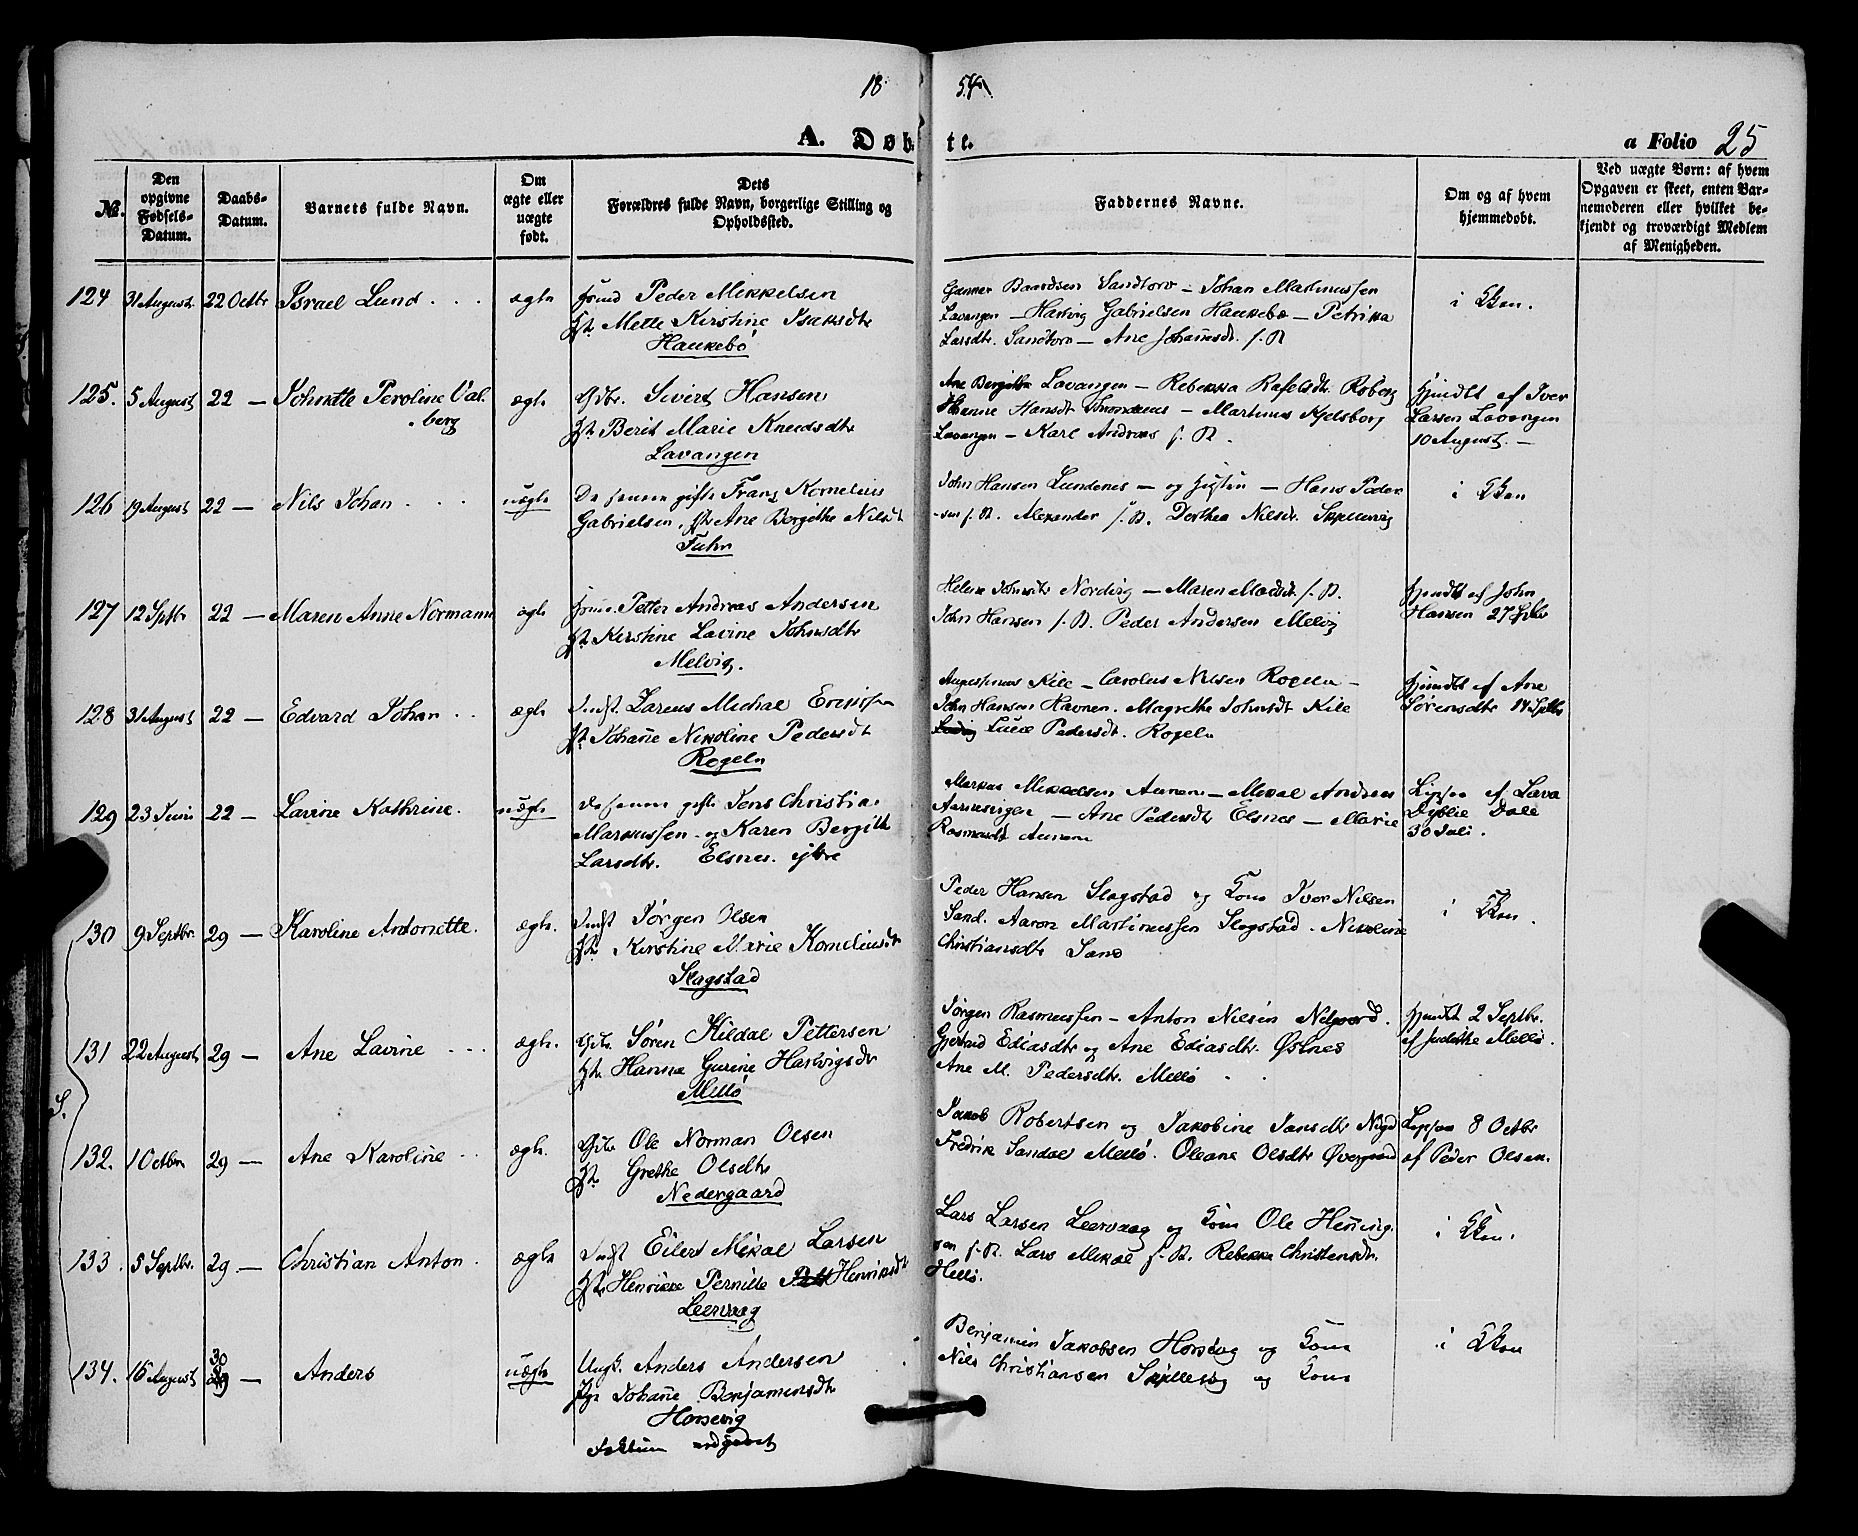 18 54.
A. Døbte.
a Folio 25
No.
Den opgivne Fødsels-Datum.
Daabs-Datum.
Barnets fulde Navn.
Om ægte eller uægte født.
Dets Forældres fulde Navn, borgerlige Stilling og Opholdssted.
Faddernes Navne.
Om og af hvem hjemmedøbt.
Ved uægte Børn: af hvem Opgaven er skeet, enten Barnemoderen eller hvilket bekjendt og troværdigt Medlem af Menigheden.
124 31 August 22 Octbr Israel Lund ægte
Peder Mikkelsen
Mette Kirstine Isaksdtr
Haukebø
Sandtorv – Johan Martinussen
Lavangen – Hartvig Gabrielsen Haukebø – Petrikka
Larsdtr. Sandtorv – Ane Johannesdt. s. St
i Kken.
125. 5 August 22 – Johnette Peroline Val-
berg
ægte
Gdbr. Sivert Hansen
Berit Marie Knudsdtr
Lavangen
Ane Bergitte Lavangen – Rebekka Rafelsdtr. Roberg
Hansdt – Martinus Kjelsberg
Lavangen – Karl Andreas s. St.
Hjmdbt af Iver
Larsen Lavangen
10 August. –
126 19 August 22 – Nils Johan
uægte
gifte Frans Kornelius
Gabrielsen, Ane Bergithe Nilsdt
John Hansen Lundenes – og Hustru – Hans Peder-
sen s. St. Alexander s. St. Dorthea Nilsdt. Skjellesvig
i Kken
127 12 Sptbr 22 – Maren Anne Normann ægte
Petter Andreas Andersen
Kirstine Lavine Johnsdtr
Melvig.
Helene Johnsdtr Nordvig – Maren s. St.
John Hansen s. St. Peder Andersen Melvig
Hjmdbt af John
Hansen 27 Sptbr
128 31 August 22 – Edvard Johan ægte
Indst Zareus Michal Erikssen
Johanne Nikoline Pedersdt
Rogeln
Kile – Carolus Nilsen Rogeln –
John Hansen Havnen. Magrethe Johnsdt Kile
Lucie Pedersdt. Rogeln
Hjmdbt af Ane
Sørensdtr 14 Sptbr
129 23 Juni 22 – Lavine Kathrine. uægte
gifte Jens Christian
Markussen og Karen Bergitte
Larsdtr. Elsnes. ytre
Markus Mikkelsen – Mikal Andreas
– Ane Pedersdt Elsnes – Marie
Rasmusdt
af Lava
Dale
30 Juli.
130 9 Septbr. 29 – Karoline Antonette. ægte.
Indst Jørgen Olsen
Kirstine Marie Korneliusdt
Slagstad
Peder Hansen Slagstad og Kone Iver Nilsen
Sand. Aaron Martinussen Slagstad. Nikoline
Christiansdtr Sand
i Kken.
131 22 August 29 – Ane Lavine ægte.
Søren Kildal Pettersen
Hanna Gurine Hartvigsdt
Mellø
Jørgen Rasmussen – Anton Nilsen Nedgaard.
Ediasdtr og Ane Ediasdtr. Øksnes
Ane M. Pedersdtr. Mellø
Hjmdbt 2 Septbr.
af Judithe Mellø.
S.
132. 1 Octbr 29 – Ane Karoline ægte.
Ole Norman Olsen
Grethe Olsdtr
Nedergaard
Jakob Robertsen og Jakobine Jansdtr
Fredrik Sandal Mellø. Oleane Olsdtr Øvergaard
8 Octbr
af Peder Olsen.
133. 5 Septbr. 29 – Christian Anton. ægte
Indst Eilert Mikal Larsen
Henrikke Pernille Henriksdt
Leervaag
Lars Larsen Leervaag og Kone Ole Henning-
sen s. St. Lars Mikal s. St. Rebekka Christensdtr.
Mellø.
i Kken.
134. 16 August 30 29 – Anders uægte
Ungk. Anders Andersen
Pige Johanne Benjaminsdtr
Horsevig
Benjamin Jakobsen Horsevig og Kone
Nils Christiansen Skjellesvig og Kone
i Kken